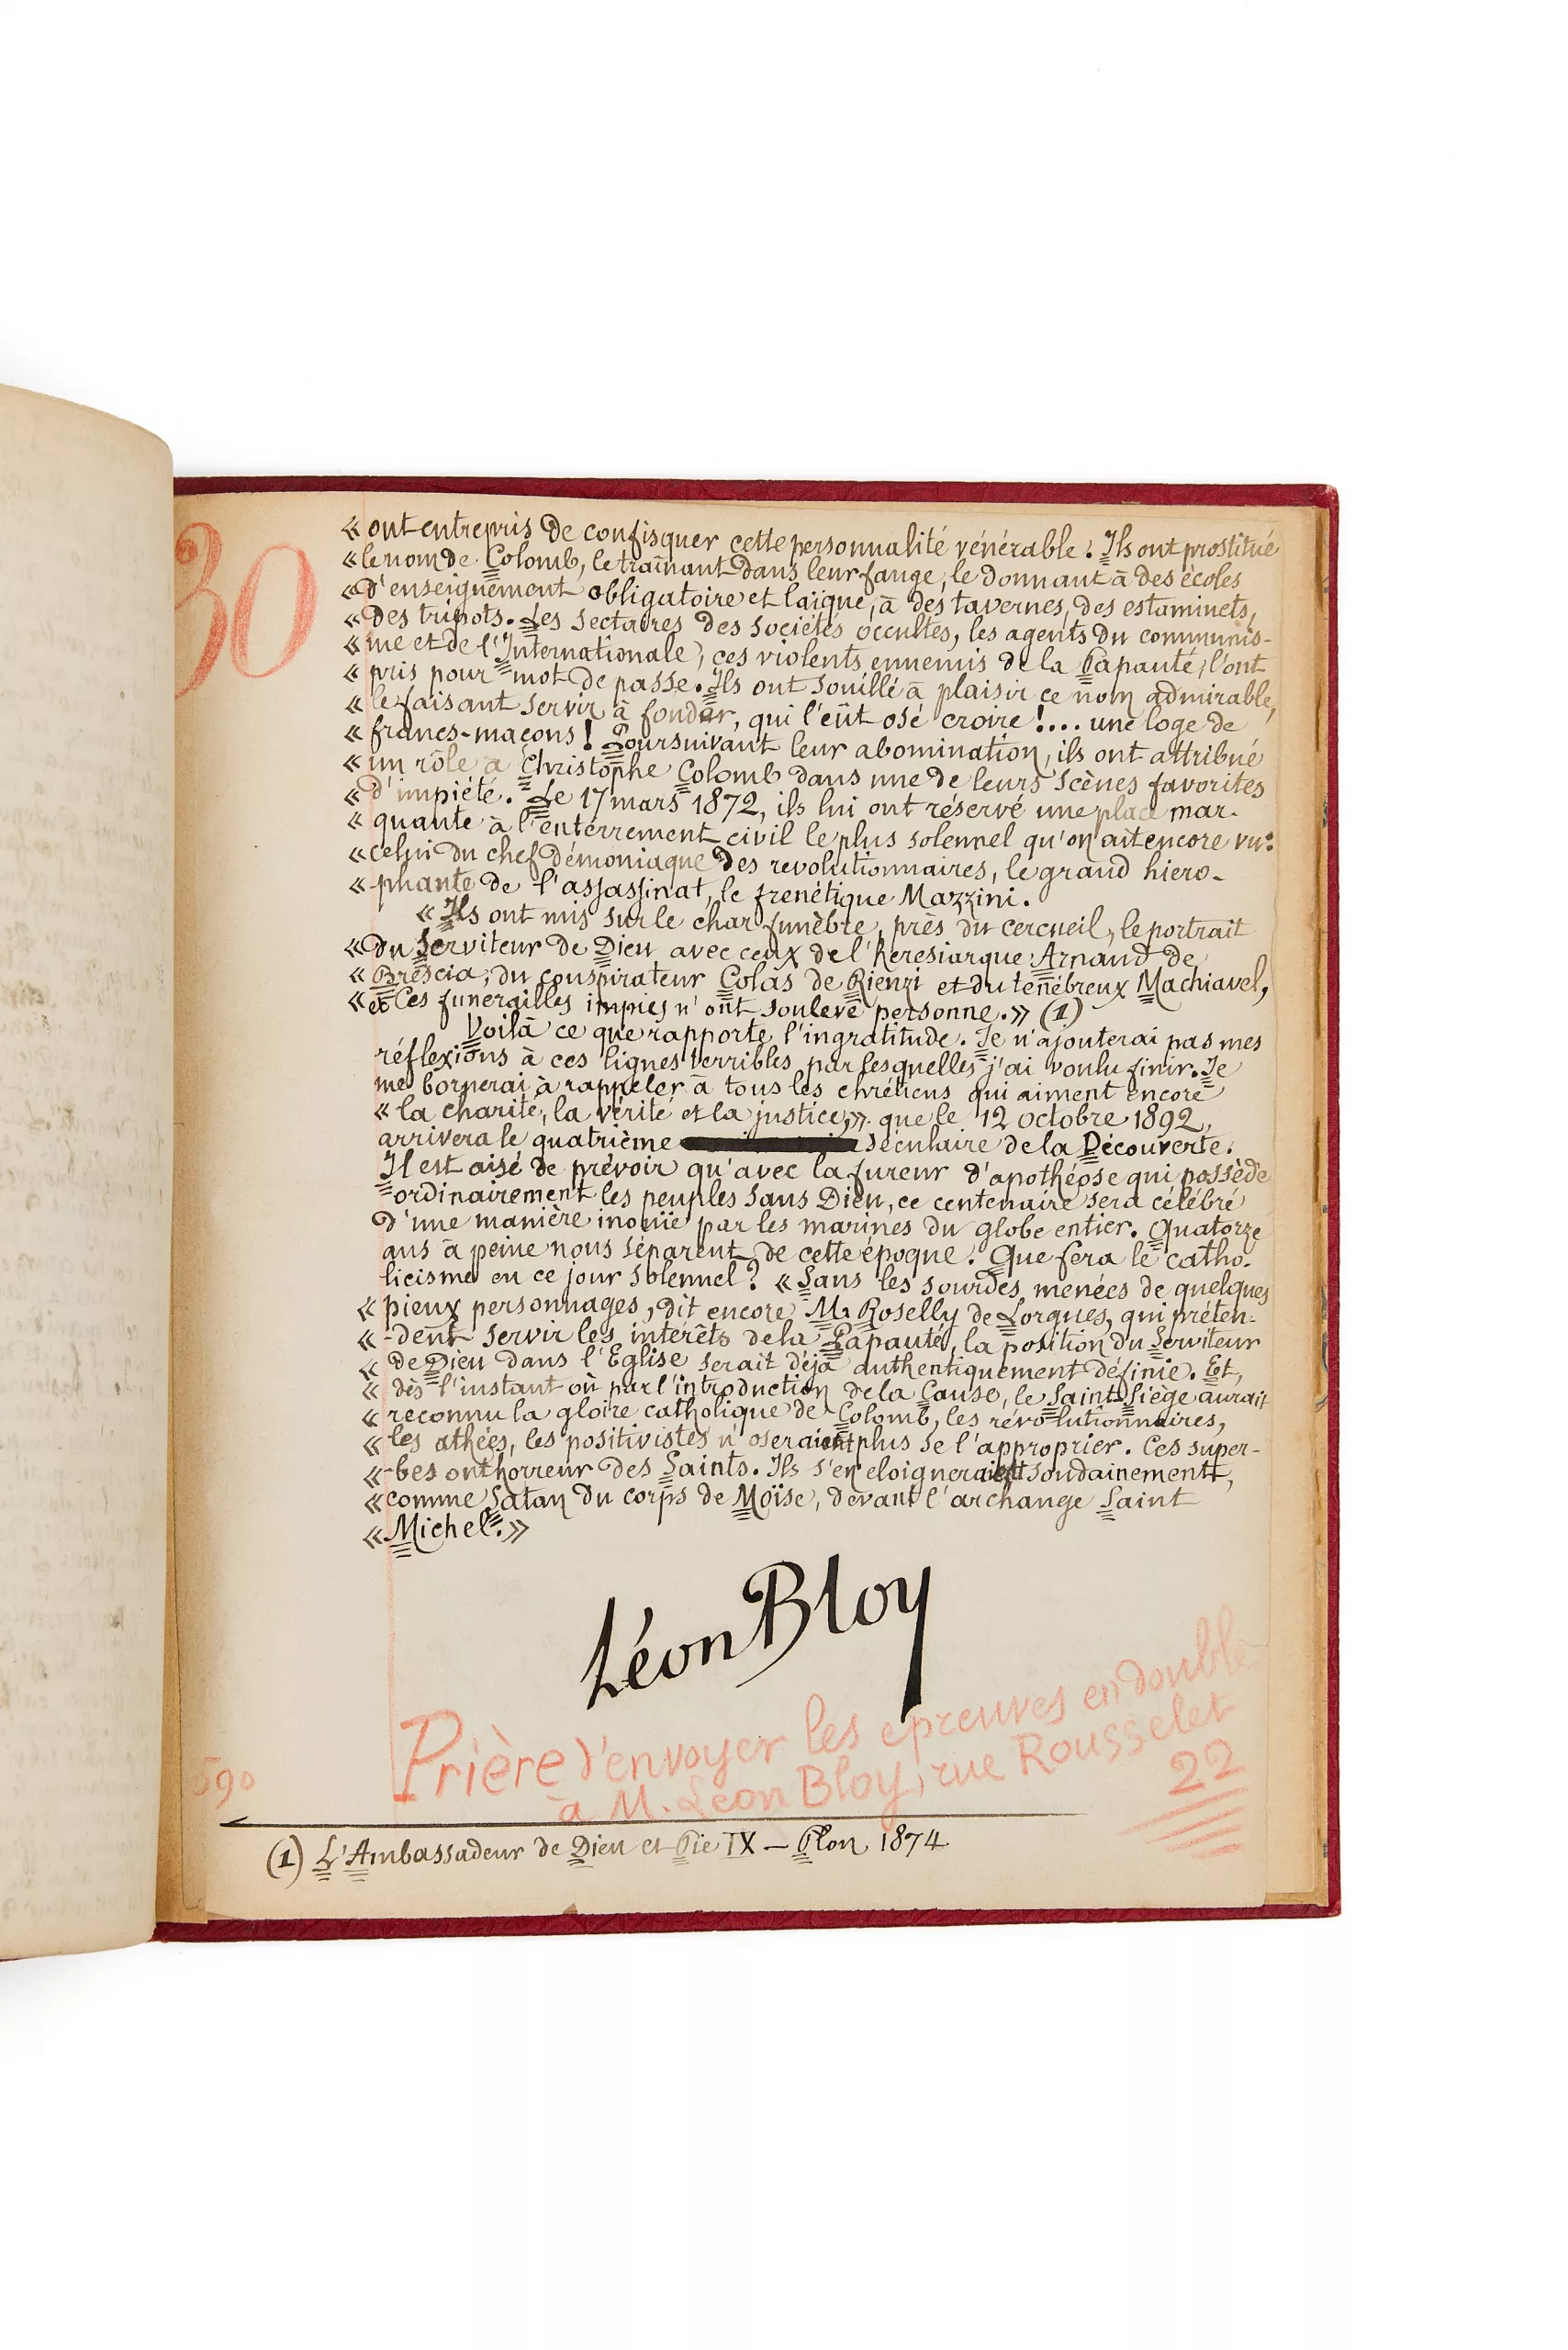 30
« ont entrepris de confisquer cette personnalité vénérable! Ils ont prostitué
« le nom de Colomb, le traînant dans leur fange, le donnant à des écoles
« d'enseignement obligatoire et laïque, à des tavernes, des estaminets,
« des tripots. Les sectaires des sociétés occultes, les agents du communis-
« me et de l'Internationale, ces violents ennemis de la Papauté, l'ont
« pris pour mot de passe. Ils ont souillé à plaisir ce nom admirable,
« le faisant servir à fonder, qui l'eût osé croire!.... une loge de
« francs-maçons! Poursuivant leur abomination, ils ont attribué
« un rôle à Christophe Colomb dans une de leurs scènes favorites
« d'impiété. Le 17 mars 1872, ils lui ont réservé une place mar-
« quante à l'enterrement civil le plus solennel qu'on ait encore vu:
« celui du chef démoniaque des revolutionnaires, le grand hiero-
« -phante de l'assassinat, le frenétique Mazzini.
« Ils ont mis sur le char funèbre, près du cercueil, le portrait
« du Serviteur de Dieu avec ceux de l'heresiarque Arnaud de
« Brescia, du conspirateur Colas de Rienzi et du ténébreux Machiavel,
« et Ces funerailles impies n'ont soulevé personne.» (1)
Voilà ce que rapporte l'ingratitude. Je n'ajouterai pas mes
réflexions à ces lignes terribles par lesquelles j'ai voulu finir. Je
me bornerai à rappeler à tous les chrétiens qui aiment encore
« la charité, la vérité et la justice,» que le 12 octobre 1892,
arrivera le quatrième séculaire de la Découverte.
Il est aisé de prévoir qu'avec la fureur d'apothéose qui possède
ordinairement les peuples sans Dieu, ce centenaire sera célébré
d'une manière inouïe par les marines du globe entier. Quatorze
ans à peine nous séparent de cette époque. Que fera le catho-
licisme en ce jour solennel? « Sans les sourdes menées de quelques
« pieux personnages, dit encore M. Roselly de Lorgues, qui préten-
« -dent servir les intérêts de la Papauté, la position du Serviteur
« de Dieu dans l'Eglise serait déjà authentiquement définie. Et,
« dès l'instant où par l'introduction de la Cause, le Saint-Siège aurait
« reconnu la gloire catholique de Colomb, les révolutionnaires,
« les athées, les positivistes n'oseraient plus se l'approprier. Ces super-
« -bes ont horreur des Saints. Ils s'en eloigneraient soudainement,
« comme Satan du corps de Moïse, devant l'archange Saint
« Michel.»
Léon Bloy
Prière d'envoyer les epreuves en double
à M. Léon Bloy, rue Rousselet
22
590
(1) L'Ambassadeur de Dieu et Pie IX — Plon 1874